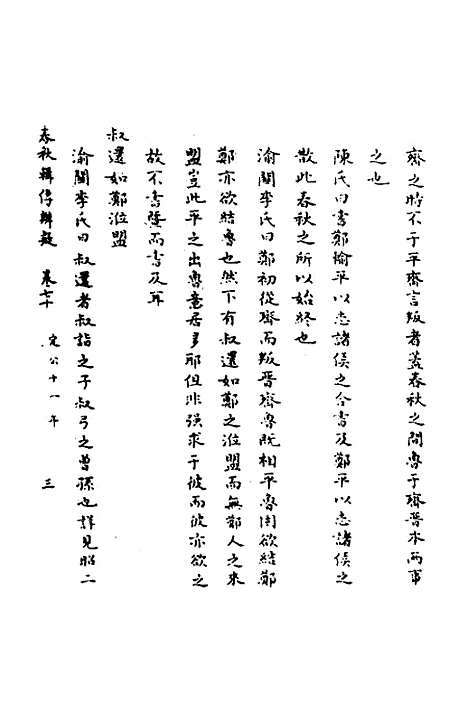 齊之時不于平齊言叛者蓋春秋之間魯于齊晉本兩事
之也
陳氏曰書鄭輸平以志諸侯之合書及鄭平以志諸侯之
散此春秋之所以始終也
渝關李氏曰鄭初從齊而叛晉齊魯既相平魯因欲結鄭
鄭亦欲結魯也然下有叔還如鄭之涖盟而無鄭人之來
盟豈此平之出魯意居多耶但非强求于彼而彼亦欲之
故不書暨而書及耳
叔還如鄭涖盟
渝關李氏曰叔還者叔詣之子叔弓之曾孫也詳見昭二
春秋輯傳辨疑 卷七十 定公十一年 三